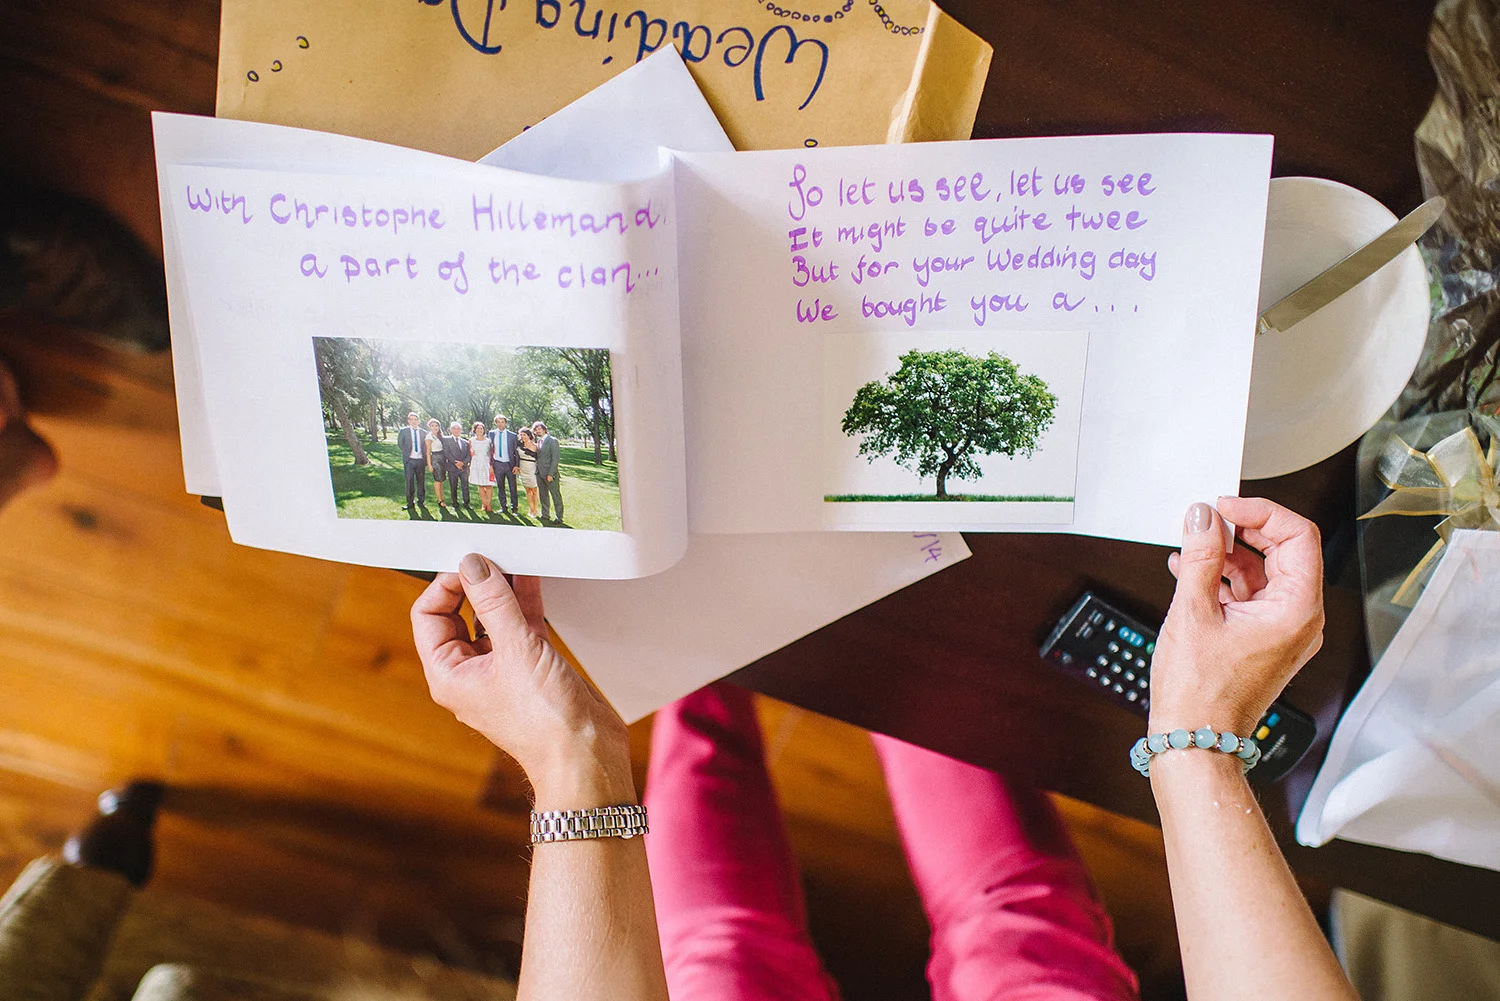 Wedding Da
With Christophe Hillemand,
a part of the clan...
So let us see, let us see
It might be quite twee
But for your Wedding day
We bought you a....